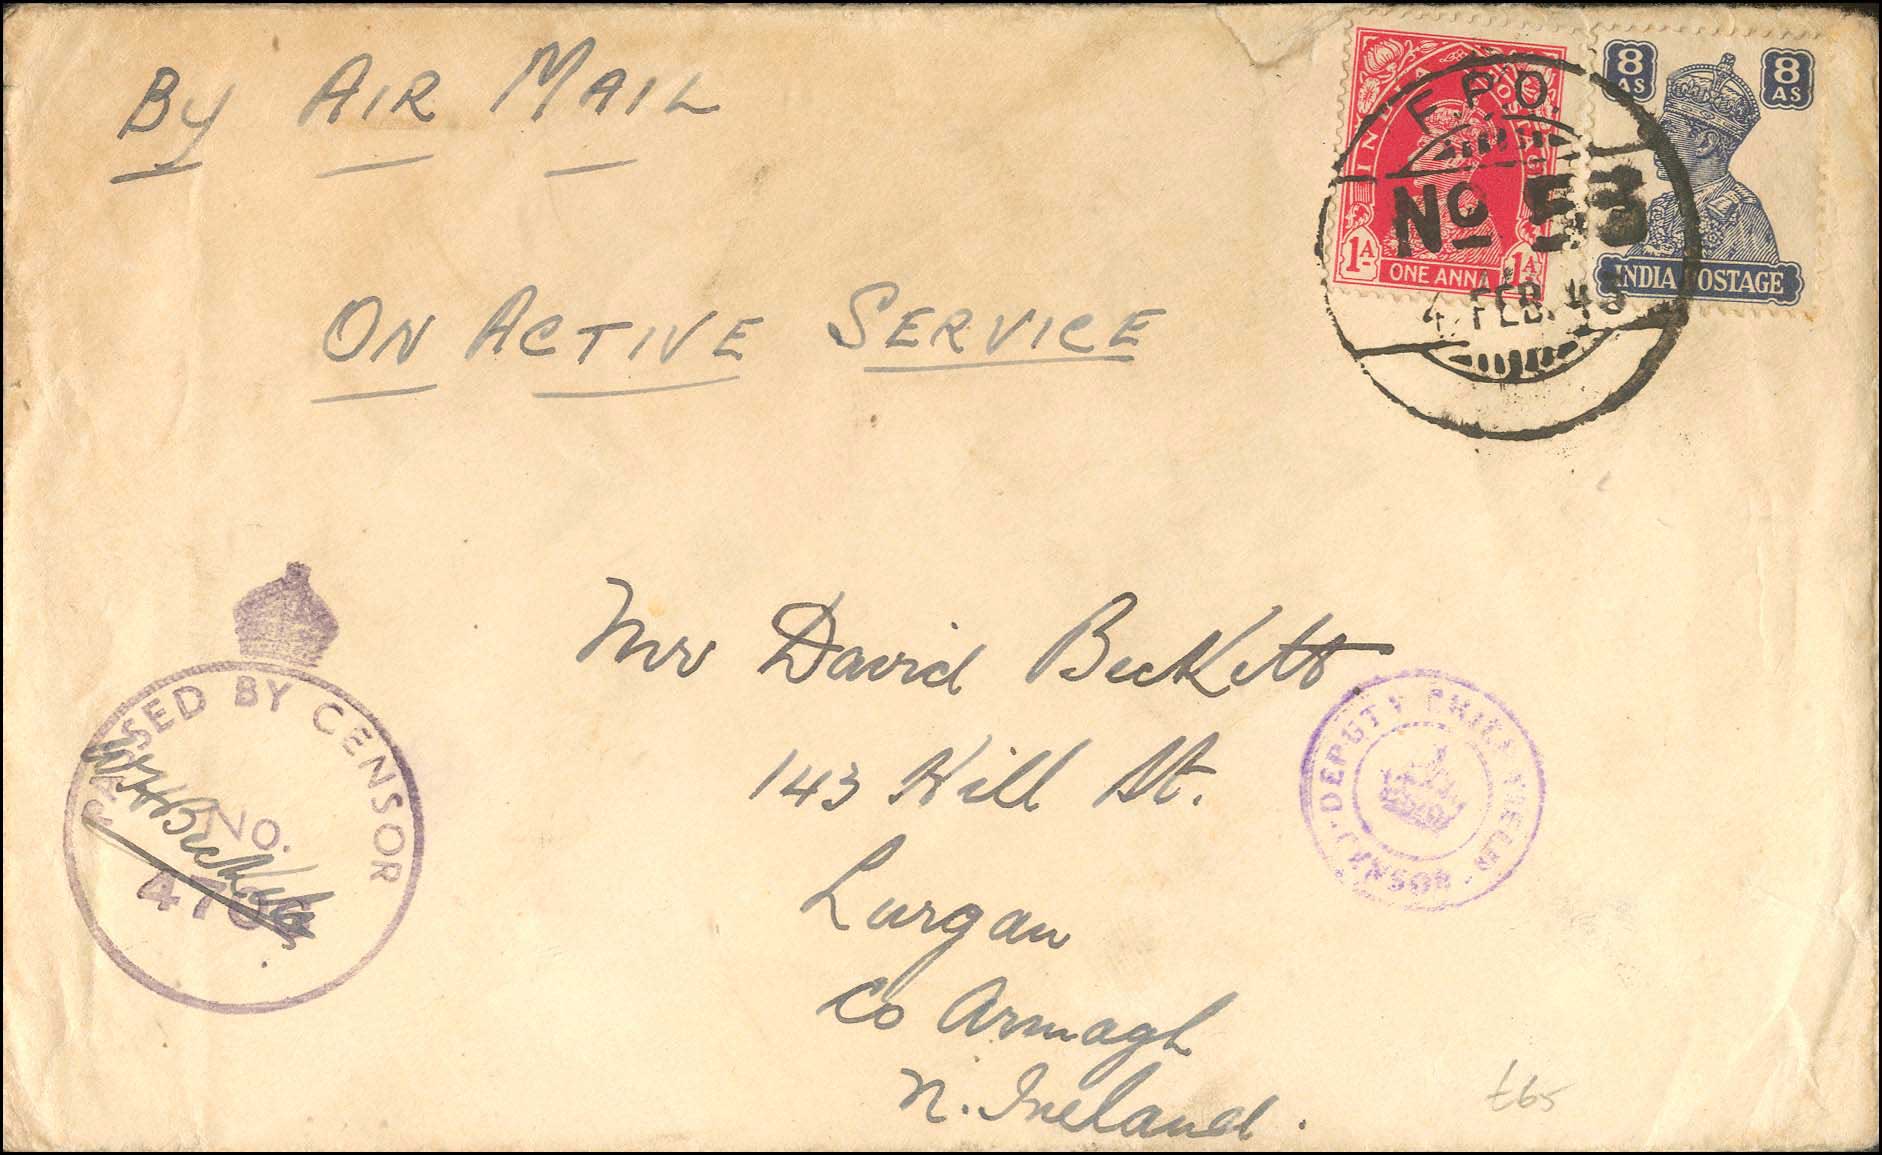 By AIR MAIL
ON ACTIVE SERVICE
INDIA POSTAGE
1A 1A
ONE ANNA
8 AS 8 AS
INDIA POSTAGE
F.P.O.
No 53
4 FEB. 43
PASSED BY CENSOR
NO.
DEPUTY CHIEF FIELD CENSOR
Mrs David Beckett
143 Hill St.
Lurgan
Co Armagh
N. Ireland.
£65